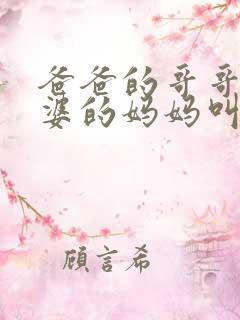 爸爸的哥哥
婆的妈妈叫
顾言希